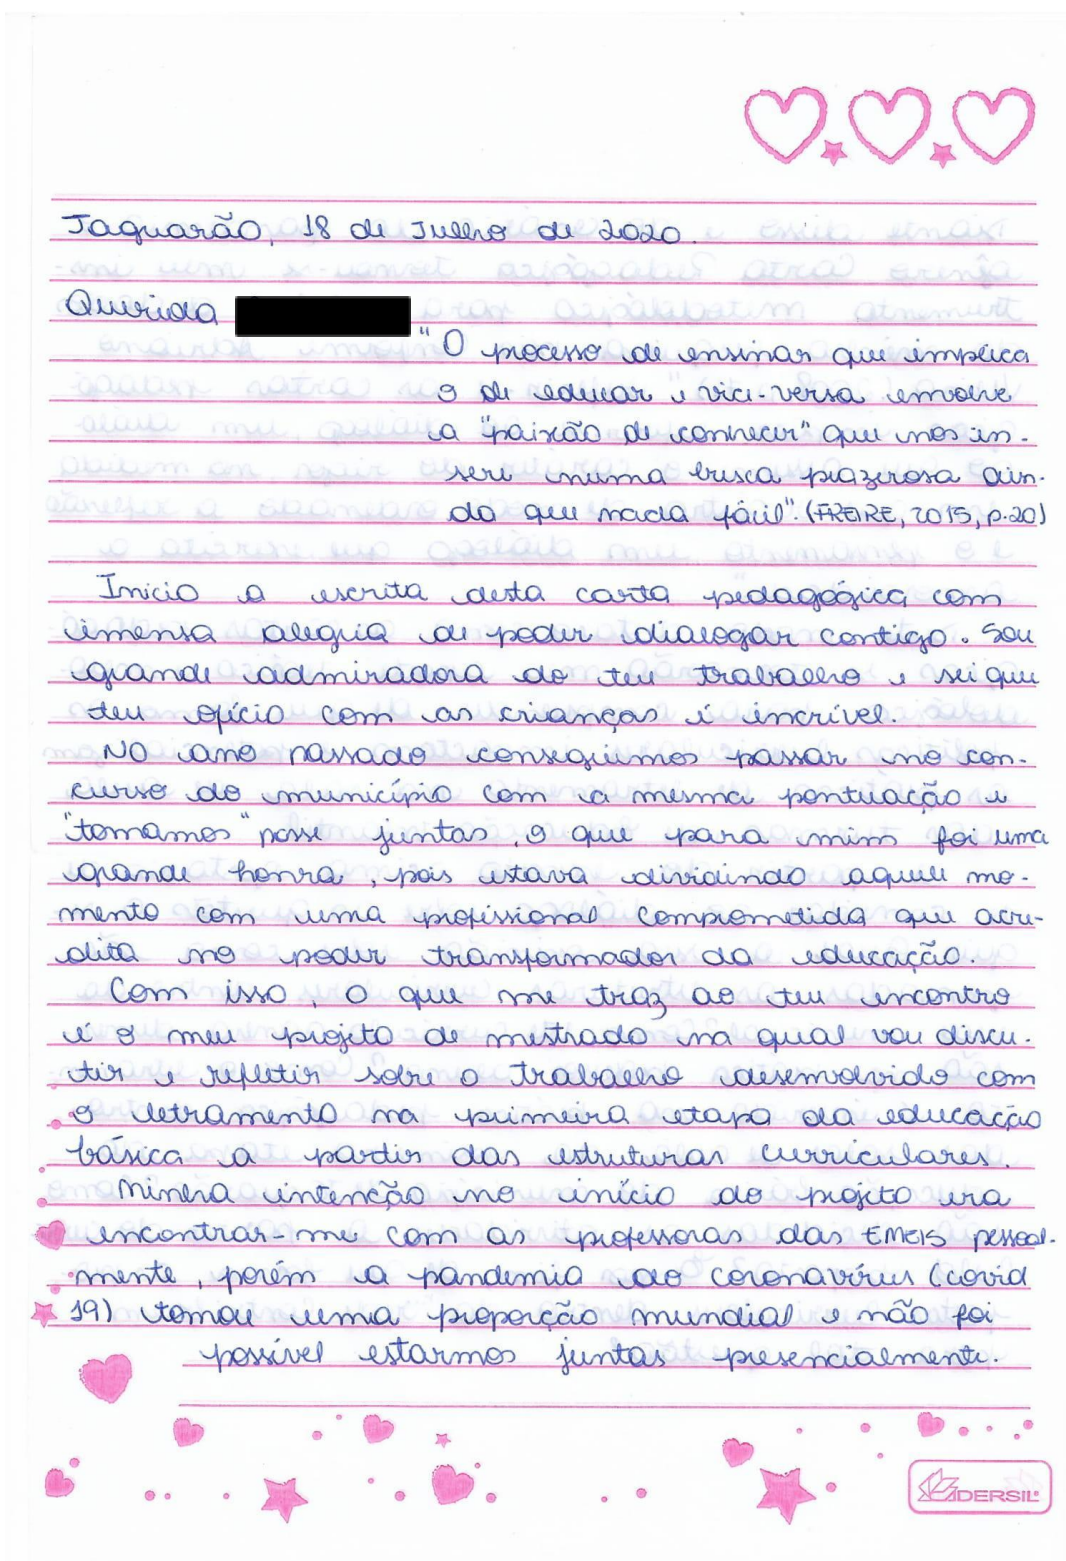 Jaguarão, 18 de Julho de 2020.
Querida
"O processo de ensinar que implica
o de educar e vice-versa envolve
a "paixão de conhecer" que nos in-
sere numa busca prazerosa ain-
da que nada fácil". (FREIRE, 2015, p.20)
Inicio a escrita desta carta pedagógica com
imensa alegria de poder dialogar contigo. Sou
grande admiradora do teu trabalho e sei que
teu ofício com as crianças é incrível.
No ano passado conseguimos passar no con-
curso do município com a mesma pontuação e
"tomamos" posse juntas, o que para mim foi uma
grande honra, pois estava dividindo aquele mo-
mento com uma profissional comprometida que acre-
dita no poder transformador da educação.
Com isso, o que me traz ao teu encontro
é o meu projeto de mestrado na qual vou discu-
tir e refletir sobre o trabalho desenvolvido com
o letramento na primeira etapa da educação
básica a partir das estruturas curriculares.
Minha intenção no início do projeto era
encontrar-me com as professoras das EMEIS pessoal-
mente, porém a pandemia do coronavírus (covid
19) tomou uma proporção mundial e não foi
possível estarmos juntas presencialmente.
DERSIL